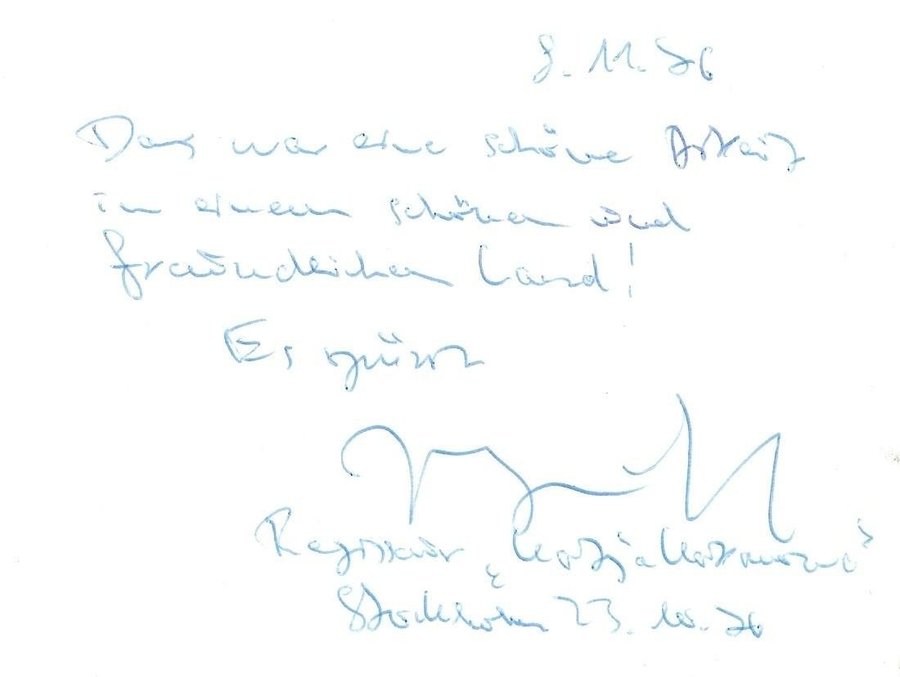 8.11.76
Das war eine schöne Arbeit
in einem schönen und
freundlichen Land!
Es grüsst
Regisseur „Katja
Stockholm 23.10.76